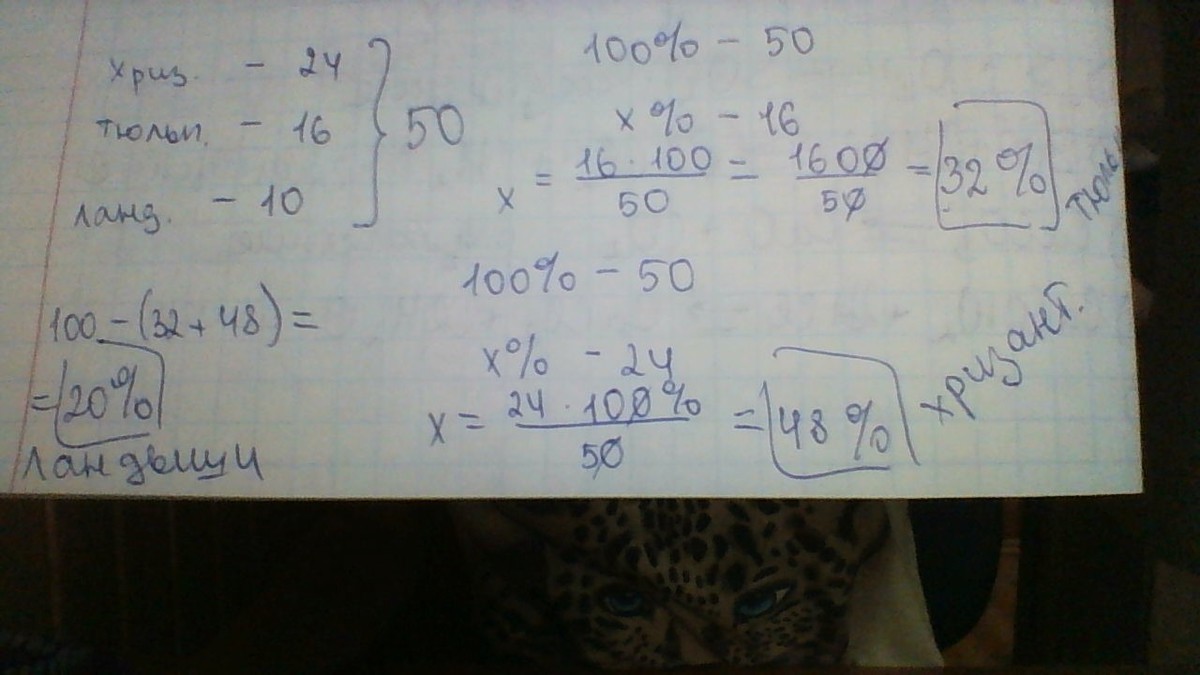 хриз. - 24
тюльп. - 16
ланд. - 10
50
100% - 50
x% - 16
x = 16 · 100 / 50 = 1600 / 50 = 32% тюль
100% - 50
x% - 24
x = 24 · 100% / 50 = 48% хризант.
100 - (32 + 48) =
= 20%
ландыши